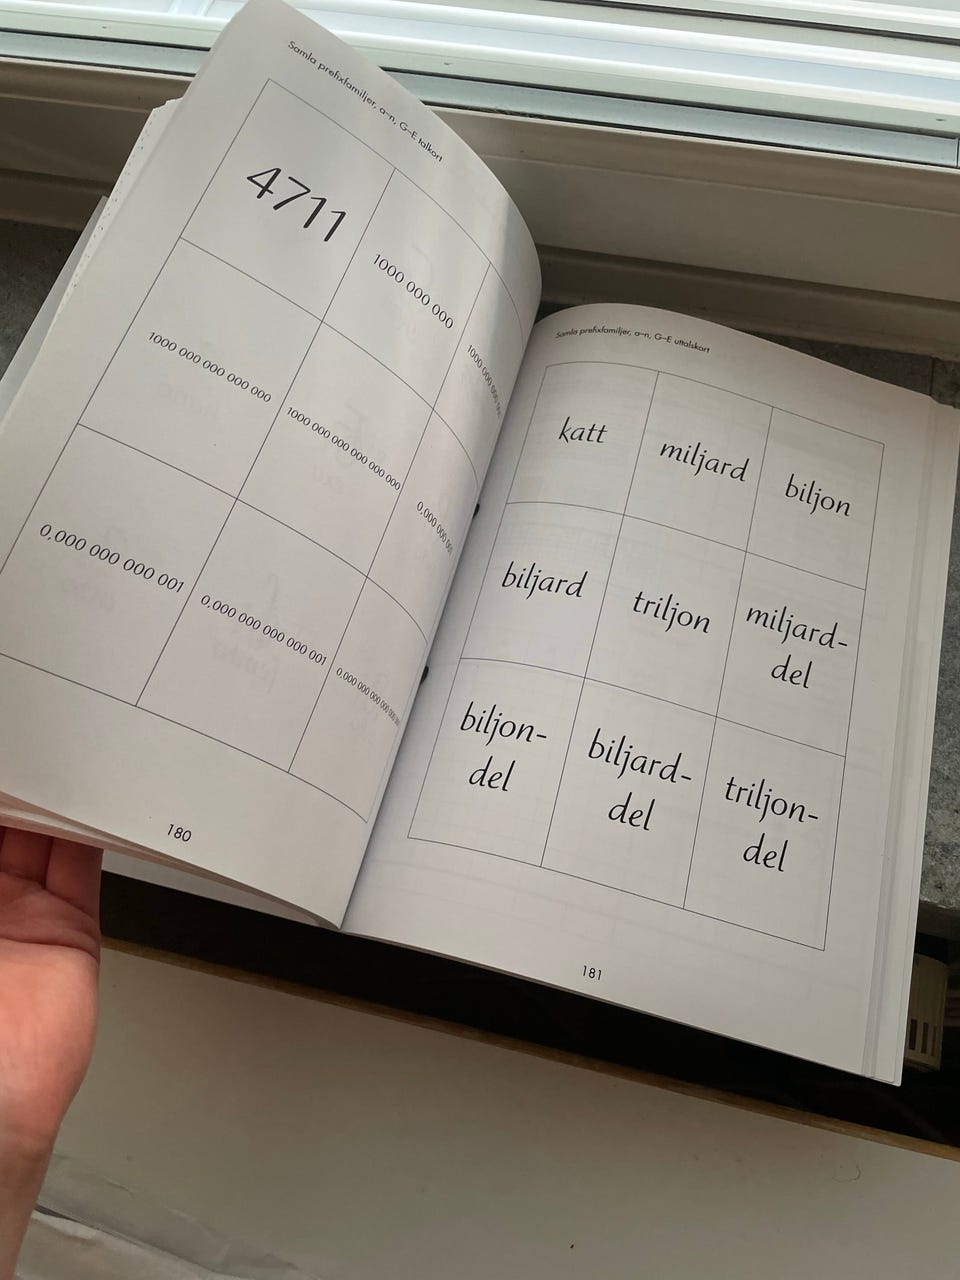 Samla prefixfamiljer, a–n, G–E talkort
4711
1000 000 000
1000 000 000 000
1000 000 000 000 000
0,000 000 001
0,000 000 000 001
0,000 000 000 000 001
180
Samla prefixfamiljer, a–n, G–E uttalskort
katt
miljard
biljon
biljard
triljon
miljard-
del
biljon-
del
biljard-
del
triljon-
del
181